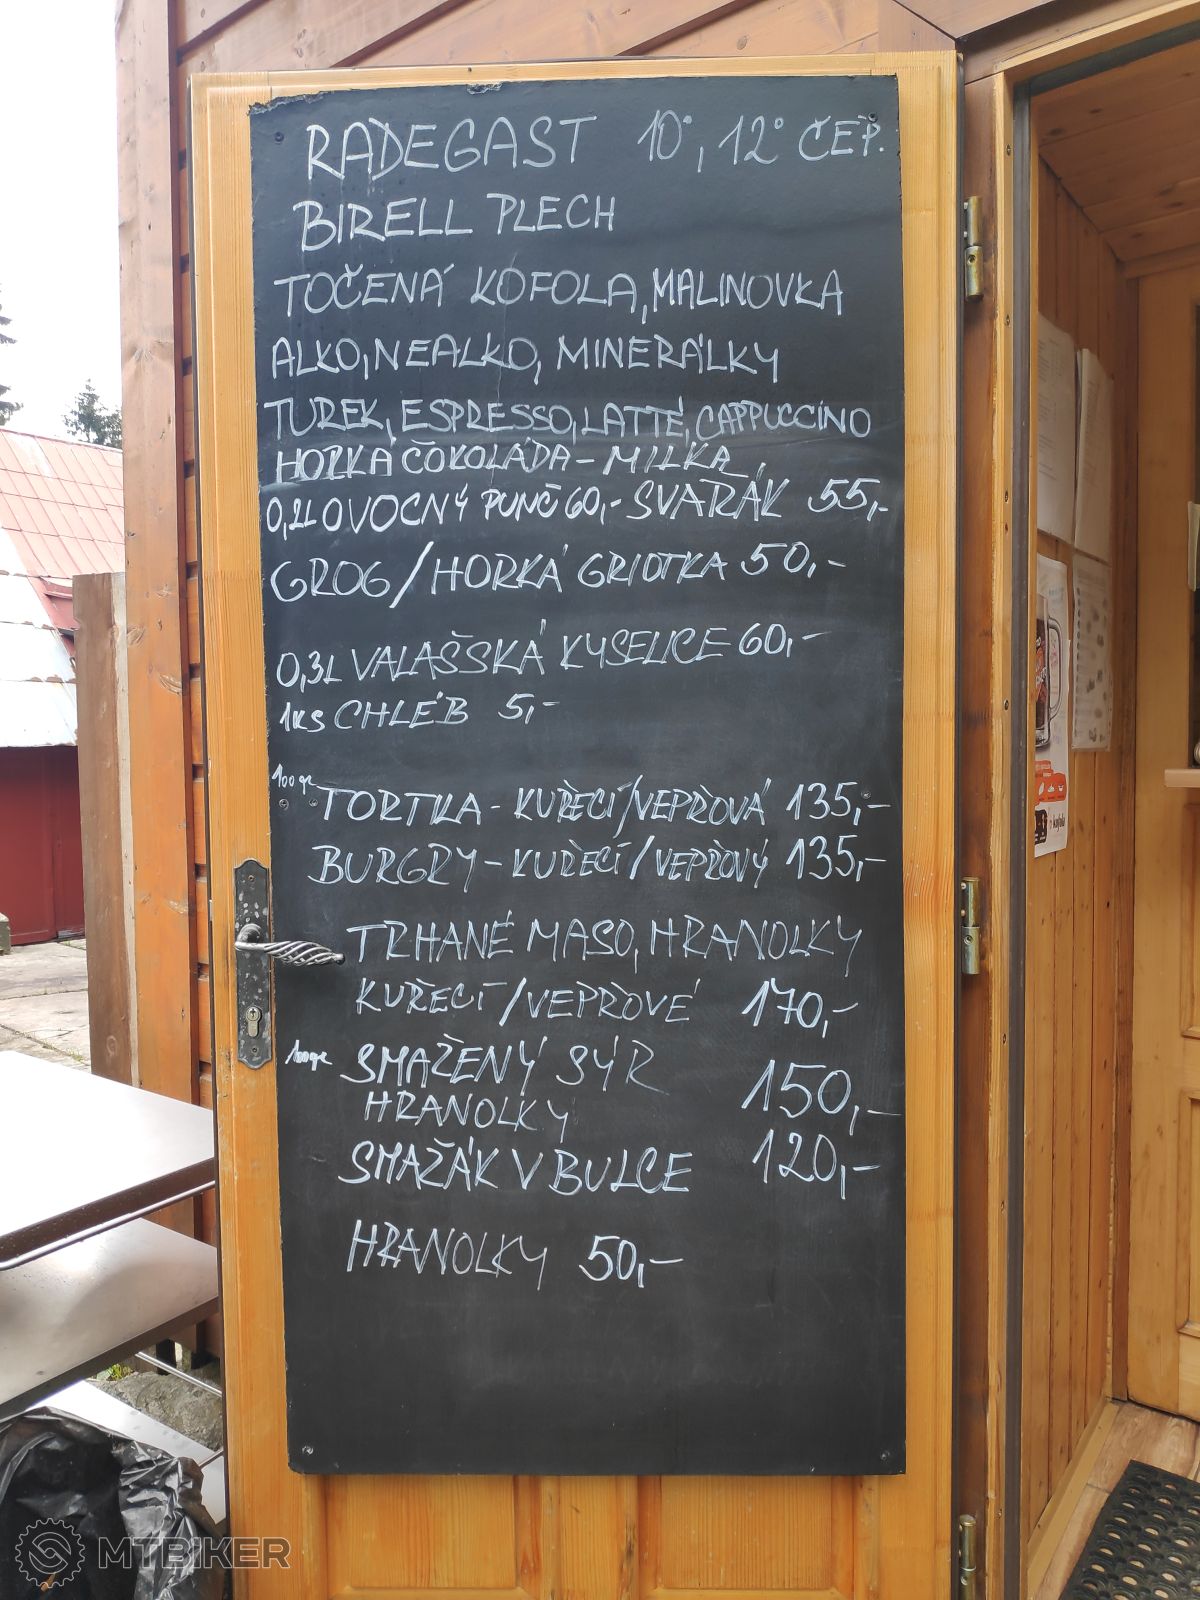 RADEGAST 10°, 12° ČEP.
BIRELL PLECH
TOČENÁ KOFOLA, MALINOVKA
ALKO, NEALKO, MINERÁLKY
TUREK, ESPRESSO, LATTÉ, CAPPUCCINO
HORKÁ ČOKOLÁDA - MILKA,
0,2L OVOCNÝ PUNČ 60,- SVAŘÁK 55,-
GROG/HORKÁ GRIOTKA 50,-
0,3L VALAŠSKÁ KYSELICE 60,-
1KS CHLÉB 5,-
100gr TORTILA - KUŘECÍ/VEPŘOVÁ 135,-
BURGRY - KUŘECÍ/VEPŘOVÝ 135,-
TRHANÉ MASO, HRANOLKY
KUŘECÍ/VEPŘOVÉ 170,-
100gr SMAŽENÝ SÝR
HRANOLKY 150,-
SMAŽÁK V BULCE 120,-
HRANOLKY 50,-
kofola
MTBIKER